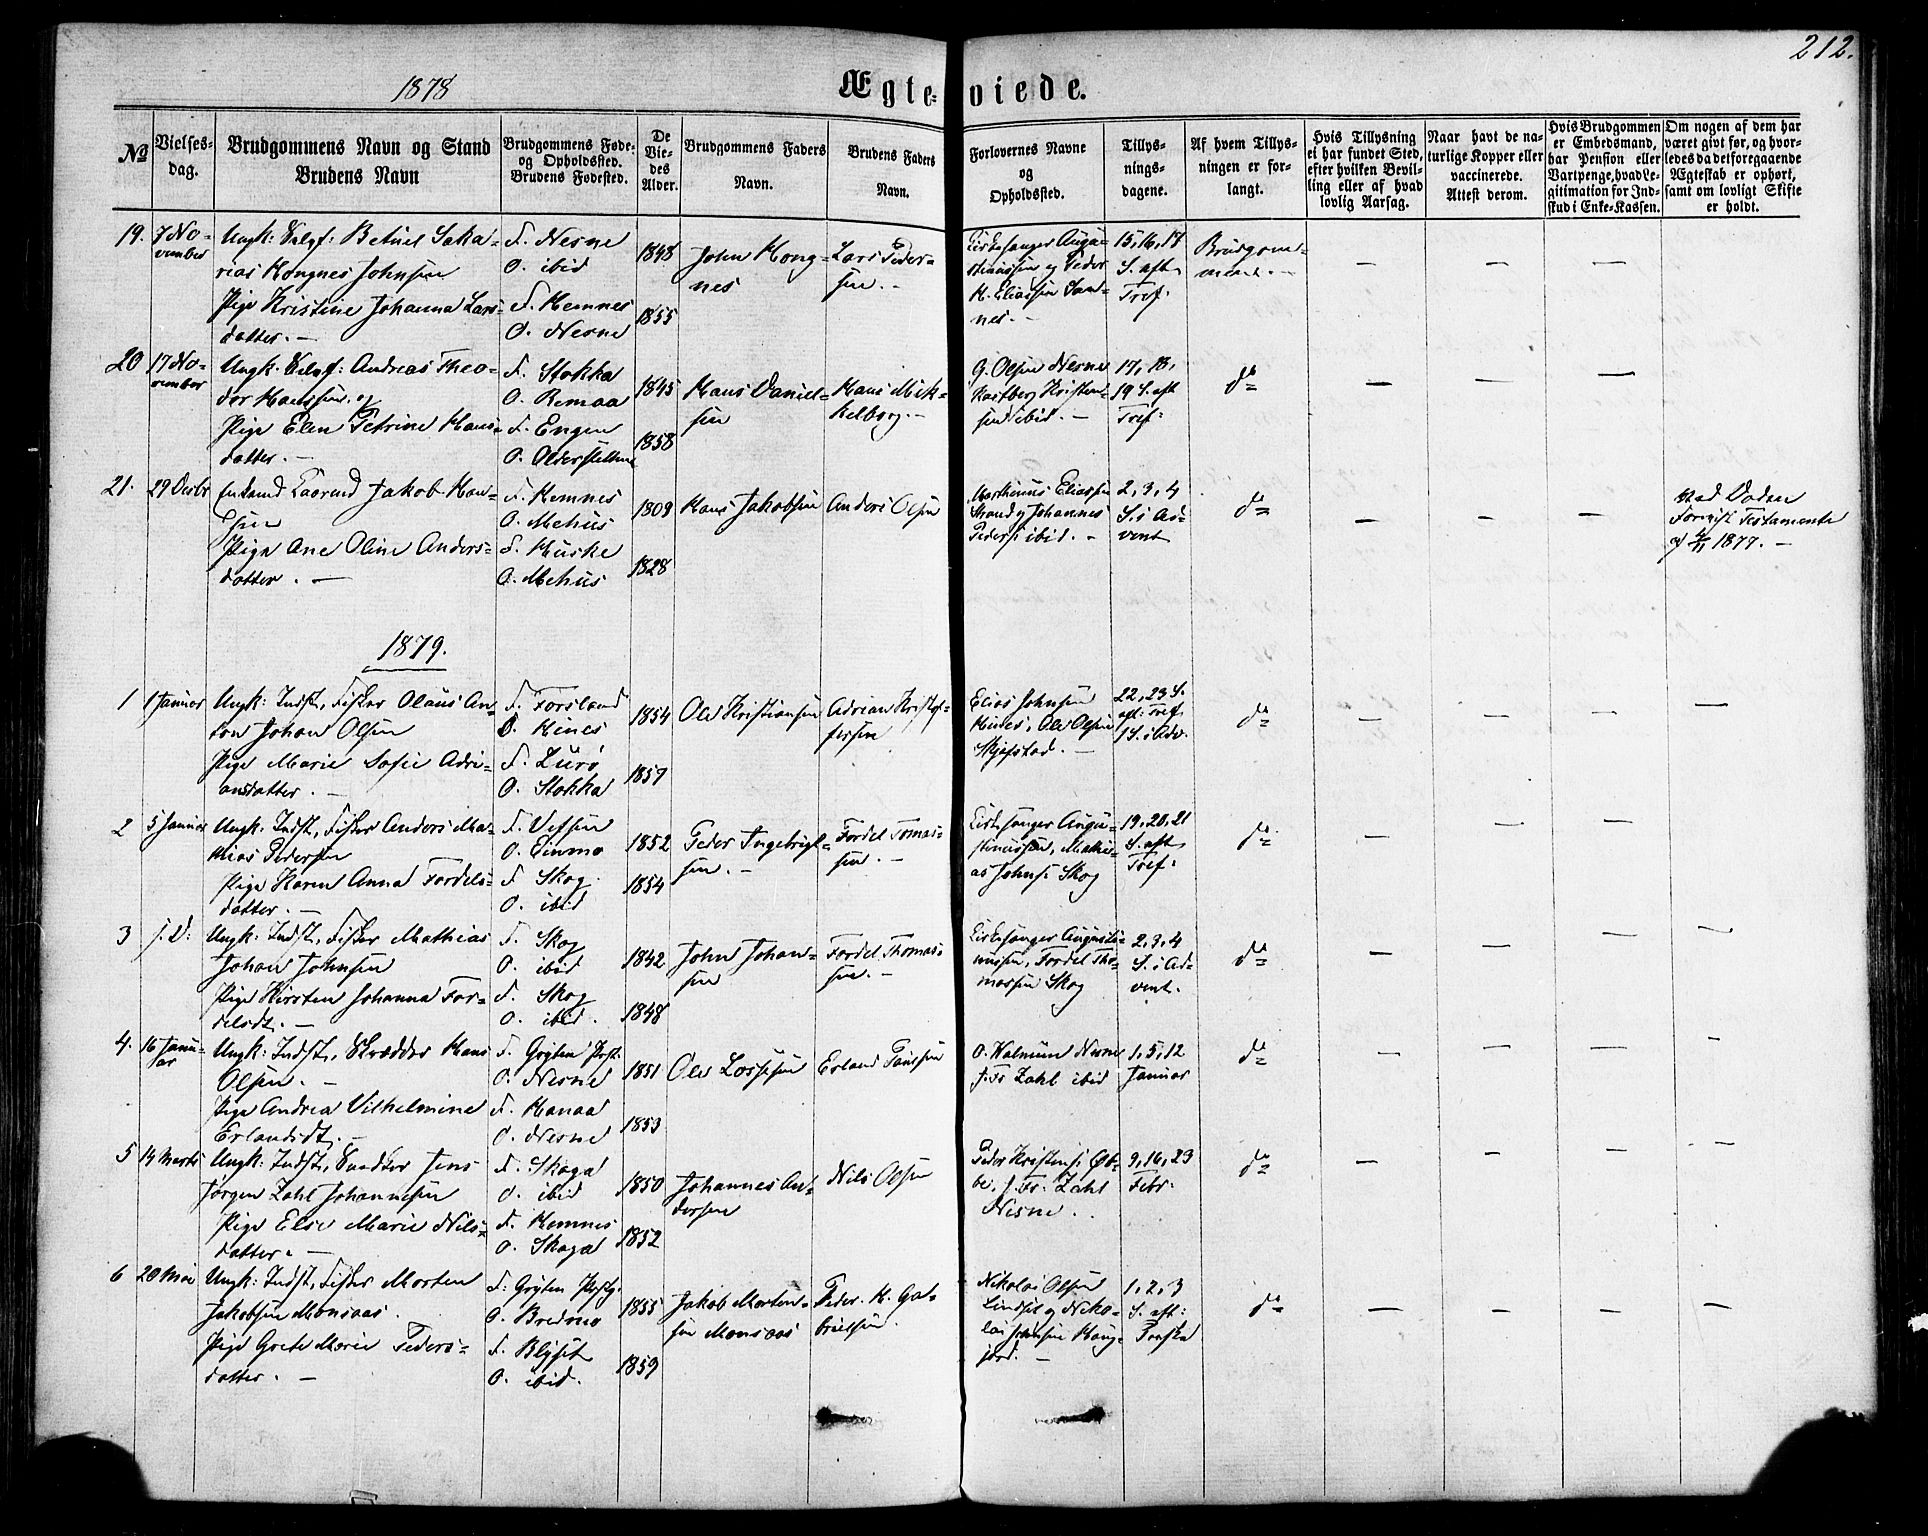 212.
1878
Ægte-viede.
№
Vielses-
dag.
Brudgommens Navn og Stand
Brudens Navn
Brudgommens Føde-
og Opholdssted.
Brudens Fødested.
De
Vie-
des
Alder.
Brudgommens Faders
Navn.
Brudens Faders
Navn.
Forlovernes Navne
og
Opholdssted.
Tillys-
nings-
dagene.
Af hvem Tillys-
ningen er for-
langt.
Hvis Tillysning
ei har fundet Sted,
efter hvilken Bevil-
ling eller af hvad
lovlig Aarsag.
Naar havt de na-
turlige Kopper eller
vaccinerede.
Attest derom.
Hvis Brudgommen
er Embedsmand,
har Pension eller
Vartpenge, hvad Le-
gitimation for Ind-
skud i Enke-Kassen.
Om nogen af dem har
været givt før, og hvor-
ledes da det foregaaende
Ægteskab er ophørt,
samt om lovligt Skifte
er holdt.
19.
7 No-
vember
Ungk: Selgf: Betuel Saka-
rias Kongnes Johnsen
Pige Kristine Johanna Lars-
datter. —
F. Nesne
O. ibid
F. Hemnes
O. Nesne
1848
1855
John Kong-
nes
Lars Peder-
sen. —
Kirkesanger Augu-
stinussen og Peder
H. Eliassen Sand-
nes. —
15, 16, 17
S. aft
Tref.
Brudgom-
men. —
20
17 No-
vember
Ungk. Selgf: Andreas Theo-
dor Hanssen og
Pige Elen Petrine Hans-
datter. —
F. Stokka
O. Remaa
F. Engen
O.
1845
1858
Hans Daniel-
sen
Hans Mik-
kelborg. —
G. Olsen Nesne
Kristen-
sen ibid. —
17, 18,
19 S. aft
Tref:
do
21.
29 Decbr
Enkemd Jakob Han-
sen
Pige Ane Oline Anders-
datter. —
F. Hemnes
O. Mehus
F. Huske
O. Mehus
1809
1828
Hans Jakobsen
Anders Olsen
Marthinus Eliassen
Strand og Johannes
Peders. ibid. —
2, 3, 4
S. i Ad-
vent
do
Ved Døden
Testamente
1877. —
1879.
1
1 Januar
Ungk: Indst, Fisker Olaus An-
ton Johan Olsen
Pige Marie Sofie Adri-
ansdatter. —
F. Forsland
O. Hines
F. Lurø
O. Stokka
1854
1857
Ole Kristiansen
Adrian Kristof-
fersen
Elias Johnsen
Hines, Ole Olsen
Skjefstad. —
22, 23 S.
aft. Tref.
1 S. i Adv.
do
2
5 Januar
Ungk: Indst, Fisker Anders Ma-
thias Pedersen
Pige Karen Anna Fordels-
datter. —
F. Vefsen
O. Einmo
F. Skog
O. ibid
1852
1854
Peder Ingebrigt-
sen. —
Fordel Tomas-
sen. —
Kirkesanger Augu-
stinussen, Mathi-
as Johns. Skog
19, 20, 21
S. aft
Tref.
do
3
s. D.
Ungk: Indst, Fisker Mathias
Johan Johnsen
Pige Kirsten Johanna For-
delsdt. —
F. Skog
O. ibid
F. Skog
O. ibid.
1842
1848
John Johan-
sen
Fordel Thomas-
sen. —
Kirkesanger Augusti-
nussen, Fordel Tho-
massen Skog
2, 3, 4
S. i Ad-
vent.
do
4.
16 Janu-
ar
Ungk: Indst, Skrædder Hans
Olsen. —
Pige Andrea Vilhelmine
Erlandsdt. —
F. Gryten Prst.
O. Nesne
F. Hanaa
O. Nesne
1851
1853
Ole Larssen
Erland Paulsen
O. Walnum Nesne
J. Fr Zahl ibid
1, 5, 12
Januar
do
5
14 Marts
Ungk: Indst, Jens
Jørgen Zahl Johannesen
Pige Else Marie Nils-
datter. —
F. Skogal
O. ibid
F. Hemnes
O. Skogal
1850
1852
Johannes An-
dersen
Nils Olsen
Peder Kristens.
J. Fr. Zahl
Nesne.
9, 16, 23
Febr.
do
6
20 Mai
Ungk: Indst, Fisker Morten
Jakobsen Monsaas.
Pige Grete Marie Peders-
datter. —
F. Gryten Prstgj.
O. Bredmo
F. Blysit
O. ibid.
1855
1859
Jakob Morten-
sen Monsaas
Peder H. Ga-
brielsen.
Nikolai Olsen
Lindset og Niko-
lai Hansen Haug-
jord. —
1, 2, 3
S. aft:
Paaske
do